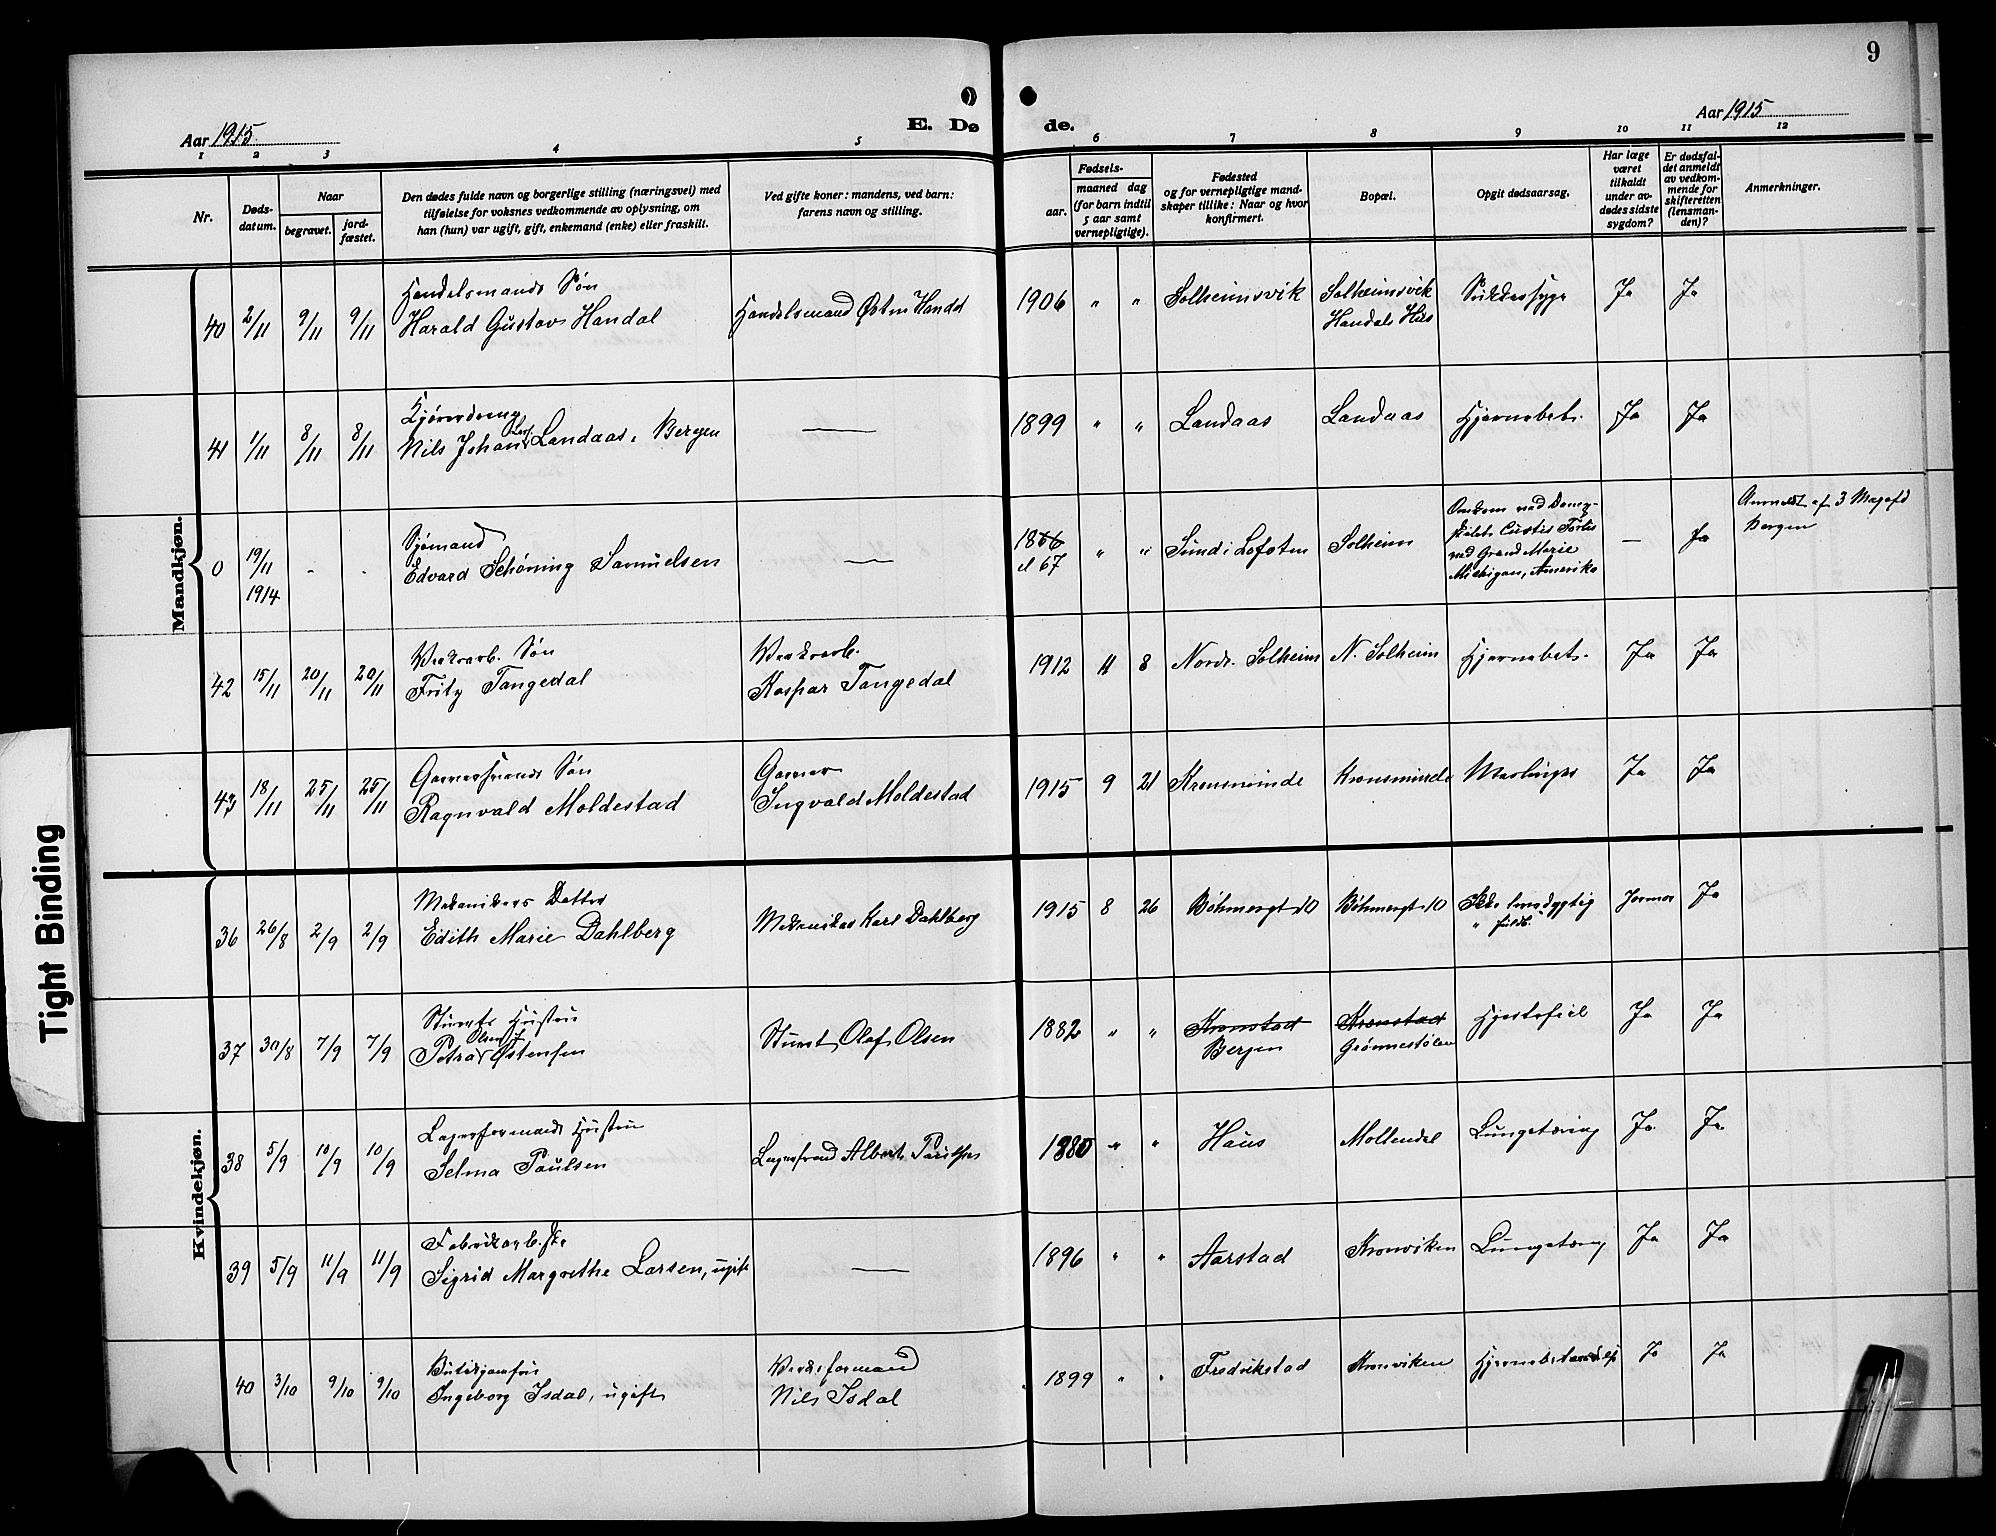 9
Aar 1915
E. Dø de.
Aar 1915
1 2 3 4 5 6 7 8 9 10 11 12
Nr.
Døds-
datum.
Naar
begravet.
jord-
fæstet.
Den dødes fulde navn og borgerlige stilling (næringsvei) med
tilføielse for voksnes vedkommende av oplysning, om
han (hun) var ugift, gift, enkemand (enke) eller fraskilt.
Ved gifte koner: mandens, ved barn:
farens navn og stilling.
Fødsels-
aar.
maaned dag
(for barn indtil
5 aar samt
vernepligtige).
Fødested
og for vernepligtige mand-
skaper tillike: Naar og hvor
konfirmert.
Bopæl.
Opgit dødsaarsag.
Har læge
været
tilkaldt
under av-
dødes sidste
sygdom?
Er dødsfal-
det anmeldt
av vedkom-
mende for
skifteretten
(lensman-
den)?
Anmerkninger.
Mandkjøn.
Handelsmands Søn
40 2/11 9/11 9/11 Harald Gustav Handal Handelsmand Østen Handal 1906 " " Solheimsvik Solheimsvik Sukkersyge Ja Ja
Handals Hus
Kjøredreng
41 1/11 8/11 8/11 Nils Johan Landaas, Bergen — 1899 " " Landaas Landaas Hjernebet. Ja Ja
Sjømand
0 19/11 1914 - - Edvard Schöning Samuelsen — 1866 " " Sund i Lofoten Solheim — Ja
el 67
Omkom ved Damp-
skibet Curtis Forlis
ved Grand Marie
Michigan, Amerika
Anmeldt af 3 Magafd
Bergen
Verksarb. Søn Verksarb.
42 15/11 20/11 20/11 Fritz Tangedal Kaspar Tangedal 1912 11 8 Nordr. Solheim N. Solheim Hjernebet. Ja Ja
Søn Garver
43 18/11 25/11 25/11 Ragnvald Moldestad Ingvald Moldestad 1915 9 21 Kronsminde Kronsminde Ja Ja
Kvindekjøn.
Mekanikers Datter
36 26/8 2/9 2/9 Edith Marie Dahlberg Mekaniker Karl Dahlberg 1915 8 26 Bøhmergt 10 Bøhmergt 10 Ikke levedygtig Jormor Ja
" fuldb.
Stuerts Hustru
Olsen f.
37 30/8 7/9 7/9 Petra Østensen Stuert Olaf Olsen 1882 " " Kronstad Kronstad Hjertefeil Ja Ja
Bergen Grønnestølen
Lagerformands Hustru
38 5/9 10/9 10/9 Selma Paulsen Albert 1880 " " Haus Møllendal Lungetæring Ja Ja
Fabrikarb.ske
39 5/9 11/9 11/9 Sigrid Margrethe Larsen, ugift — 1896 " " Aarstad Kronviken Lungetæring Ja Ja
Butikjomfru Verksformand
40 3/10 9/10 9/10 Ingeborg Isdal, ugift Nils Isdal 1899 " " Fredrikstad Kronviken Ja Ja
Tight Binding